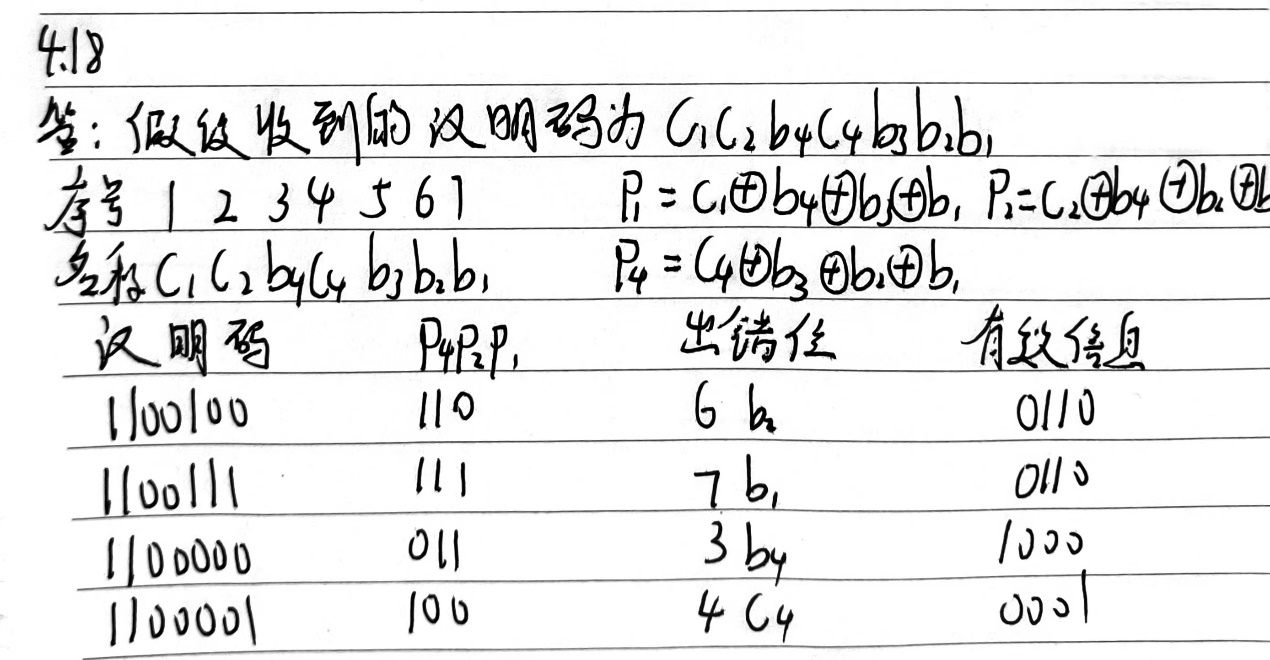 4.18
答：假设收到的汉明码为 C₁C₂b₄C₄b₃b₂b₁
序号 1 2 3 4 5 6 7 P₁=C₁⊕b₄⊕b₃⊕b₁ P₂=C₂⊕b₄⊕b₂⊕b
名称 C₁C₂b₄C₄b₃b₂b₁ P₄=C₄⊕b₃⊕b₂⊕b₁
汉明码 P₄P₂P₁ 出错位 有效信息
1100100 110 6 b₂ 0110
1100111 111 7 b₁ 0110
1100000 011 3 b₄ 1000
1100001 100 4 C₄ 0001